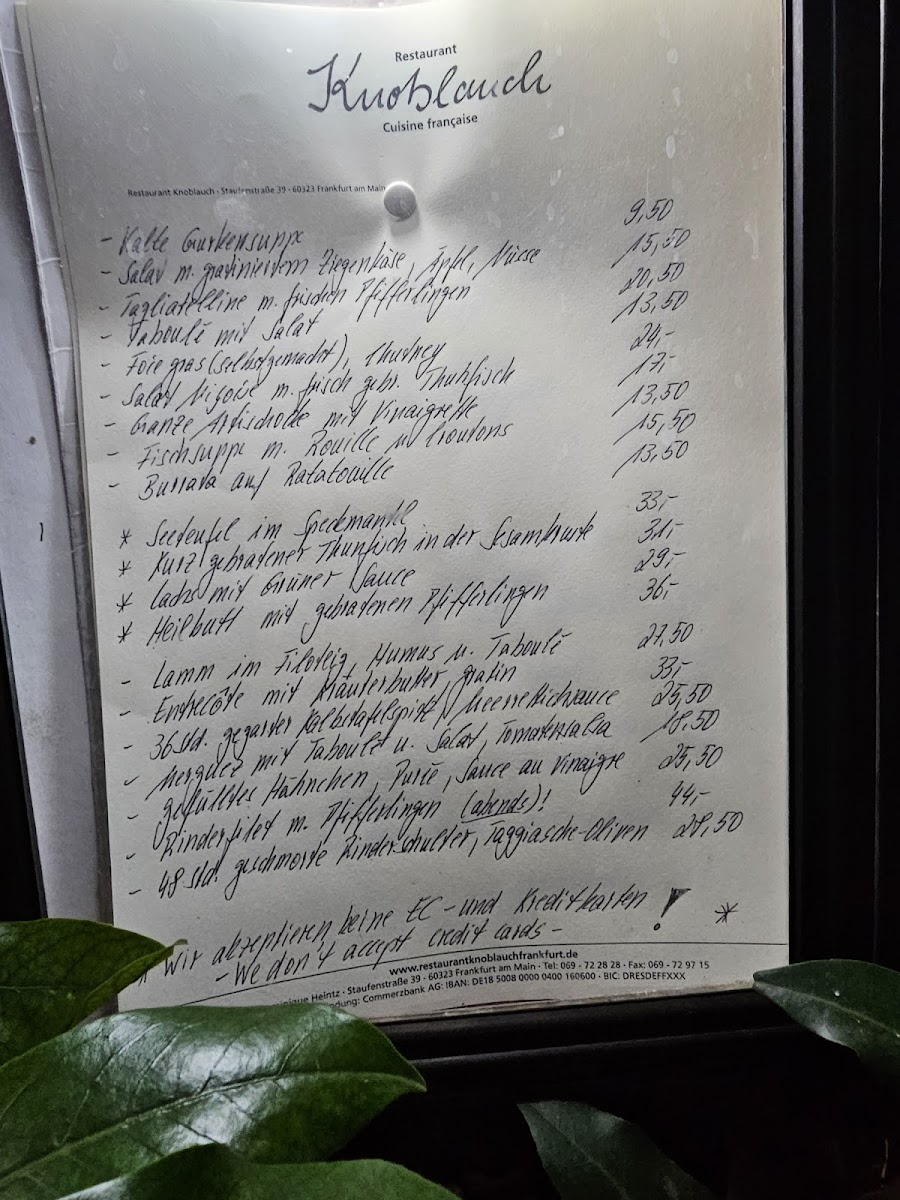 Restaurant
Knoblauch
Cuisine française
Restaurant Knoblauch · Staufenstraße 39 · 60323 Frankfurt am Main
- Kalte Gurkensuppe 9,50
- Salat m. gratiniertem Ziegenkäse, Äpfel, Nüsse 15,50
- Tagliatelline m. frischen Pfifferlingen 20,50
- Taboulé mit Salat 13,50
- Foie gras (selbstgemacht), Chutney 24,-
- Salat Niçoise m. frisch gebr. Thunfisch 17,-
- Ganze Artischocke mit Vinaigrette 13,50
- Fischsuppe m. Rouille u. Croutons 15,50
- Burrata auf Ratatouille 13,50
* Seeteufel im Speckmantel 33,-
* Kurz gebratener Thunfisch in der Sesamkruste 31,-
* Lachs mit Grüner Sauce 29,-
* Heilbutt mit gebratenen Pfifferlingen 36,-
- Lamm im Filoteig, Humus u. Taboulé 27,50
- Entrecôte mit Kräuterbutter, gratin 33,-
- 36 Std. gegarter Kalbstafelspitz, Meerrettichsauce 25,50
- Merguez mit Taboulé u. Salat, Tomatensalsa 18,50
- gefülltes Hähnchen, Purée, Sauce au Vinaigre 25,50
- Rinderfilet m. Pfifferlingen (abends)! 44,-
- 48 Std. geschmorte Rinderschulter, Taggiasche-Oliven 28,50
* Wir akzeptieren keine EC- und Kreditkarten ! *
- We don't accept credit cards -
www.restaurantknoblauchfrankfurt.de
Heintz · Staufenstraße 39 · 60323 Frankfurt am Main · Tel: 069 - 72 28 28 · Fax: 069 - 72 97 15
Commerzbank AG: IBAN: DE18 5008 0000 0400 160600 · BIC: DRESDEFFXXX